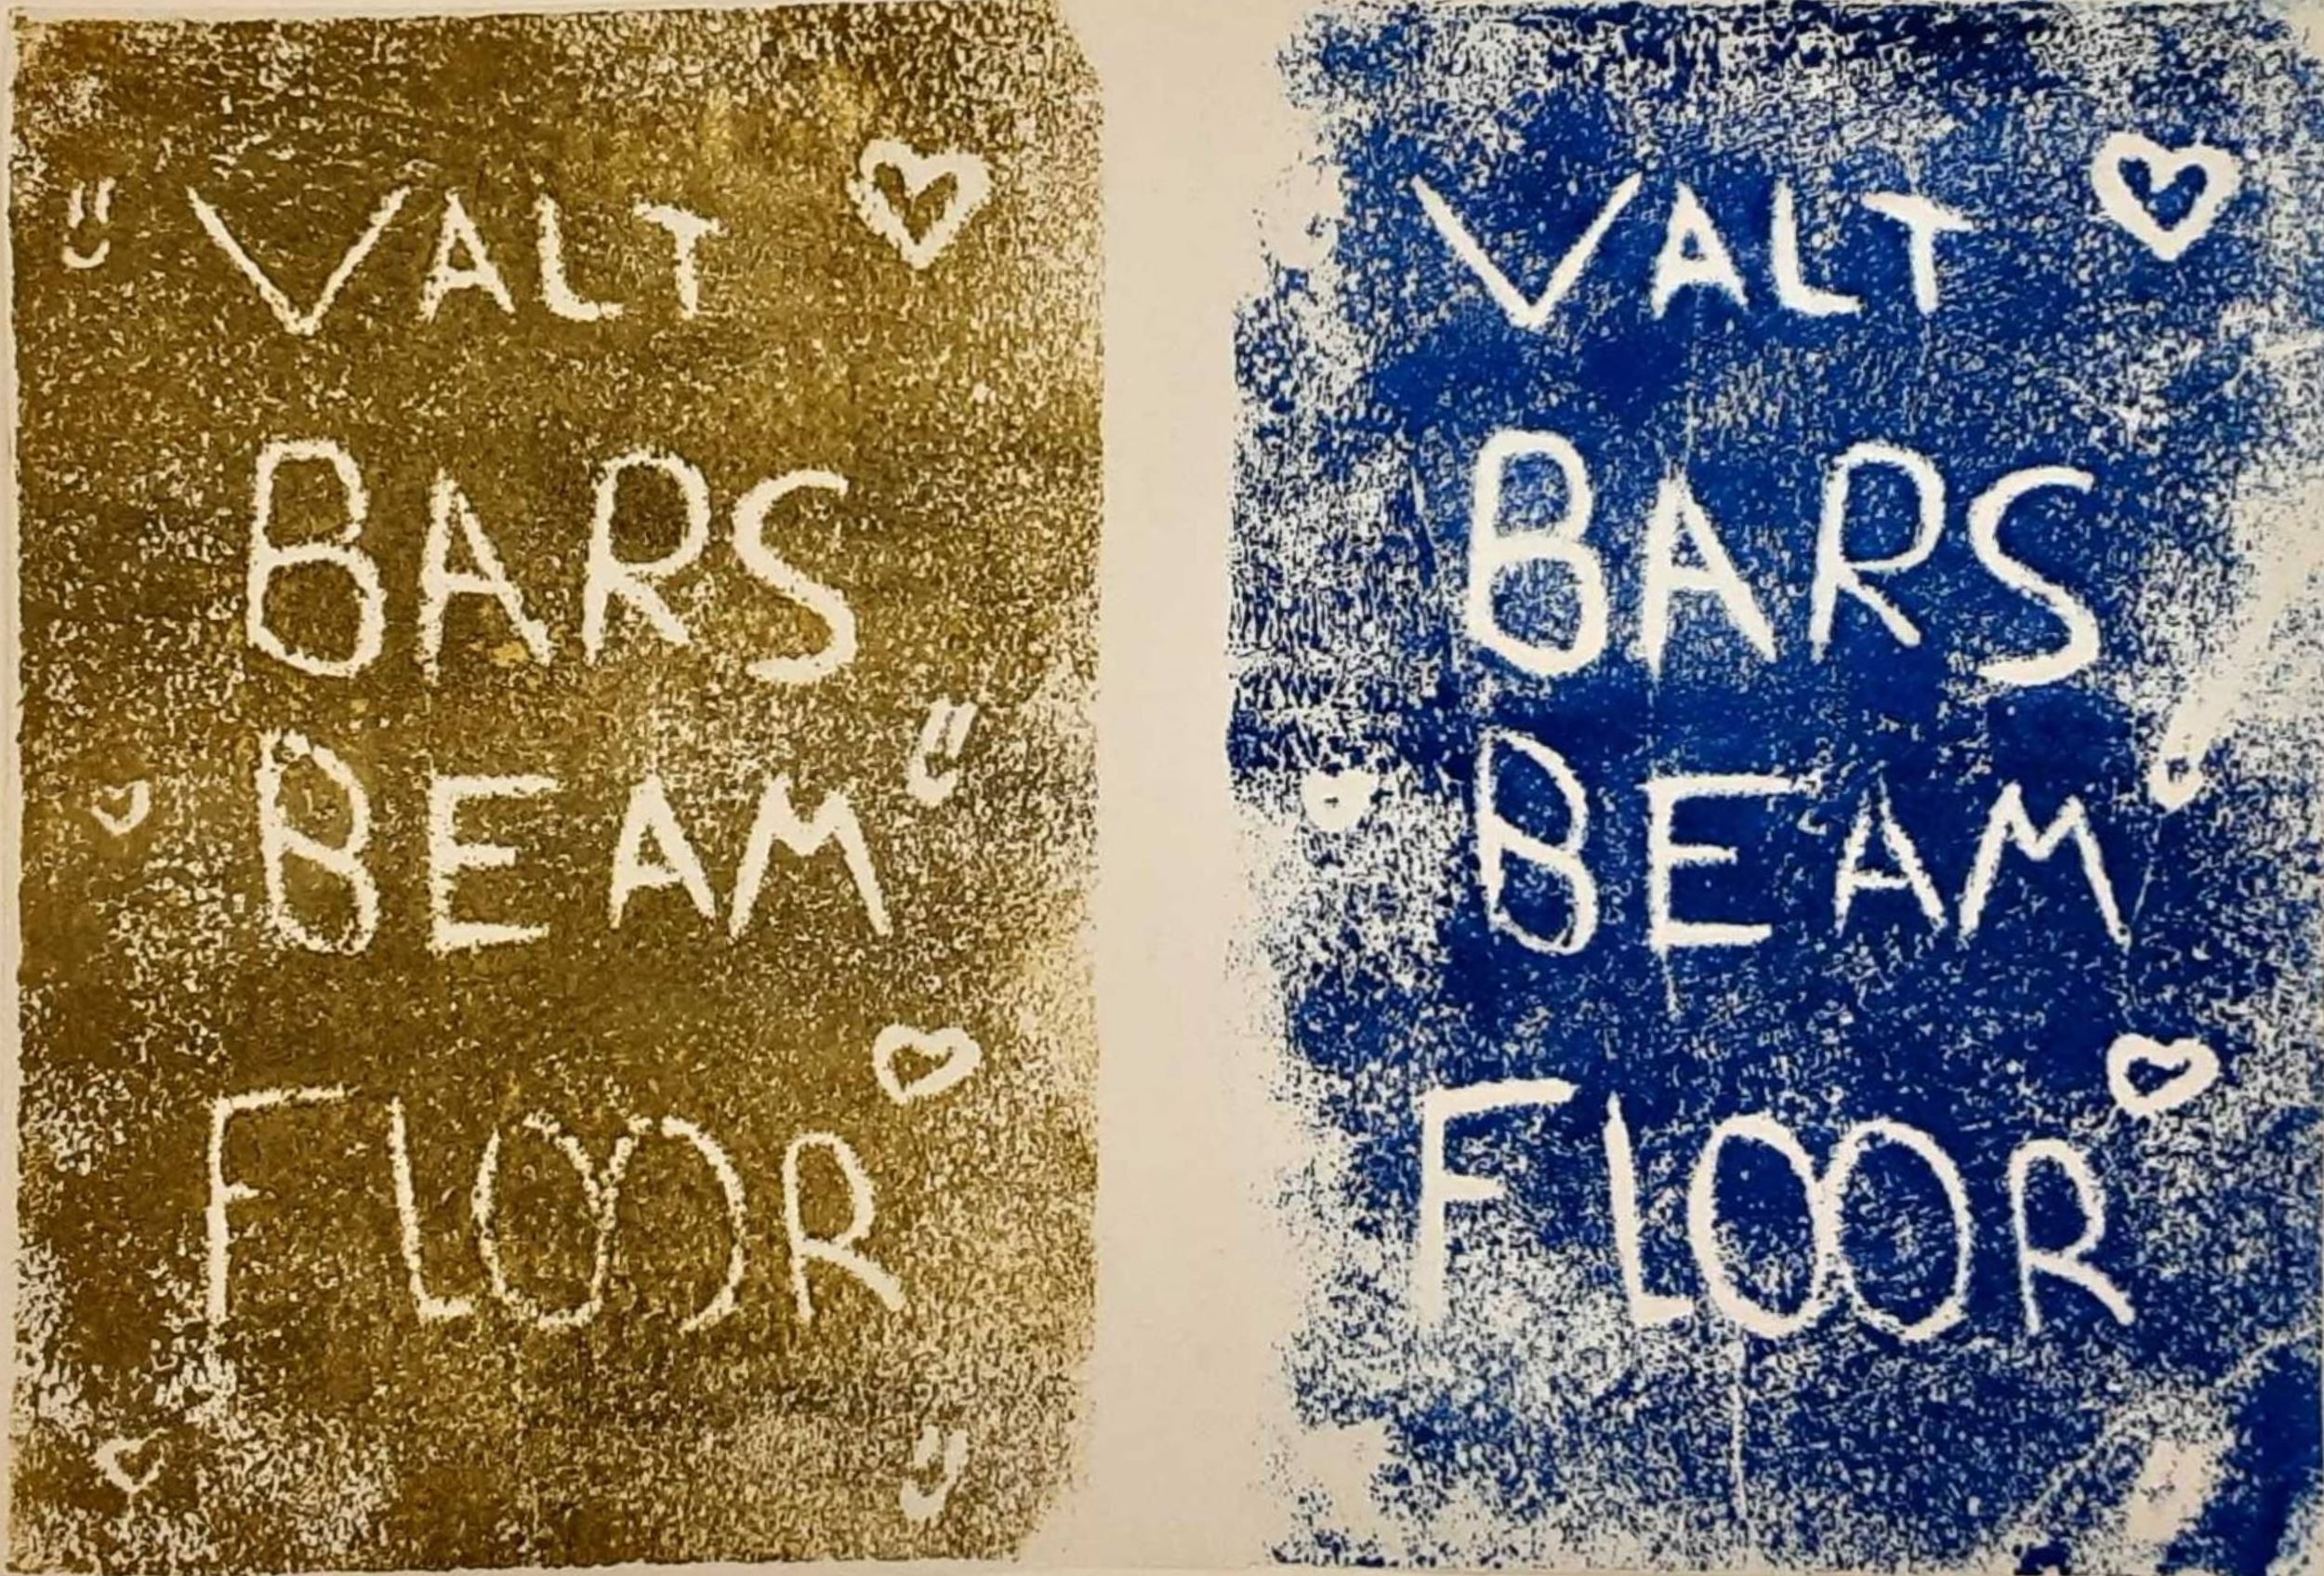 VALT
BARS
BEAM
FLOOR
VALT
BARS
BEAM
FLOOR